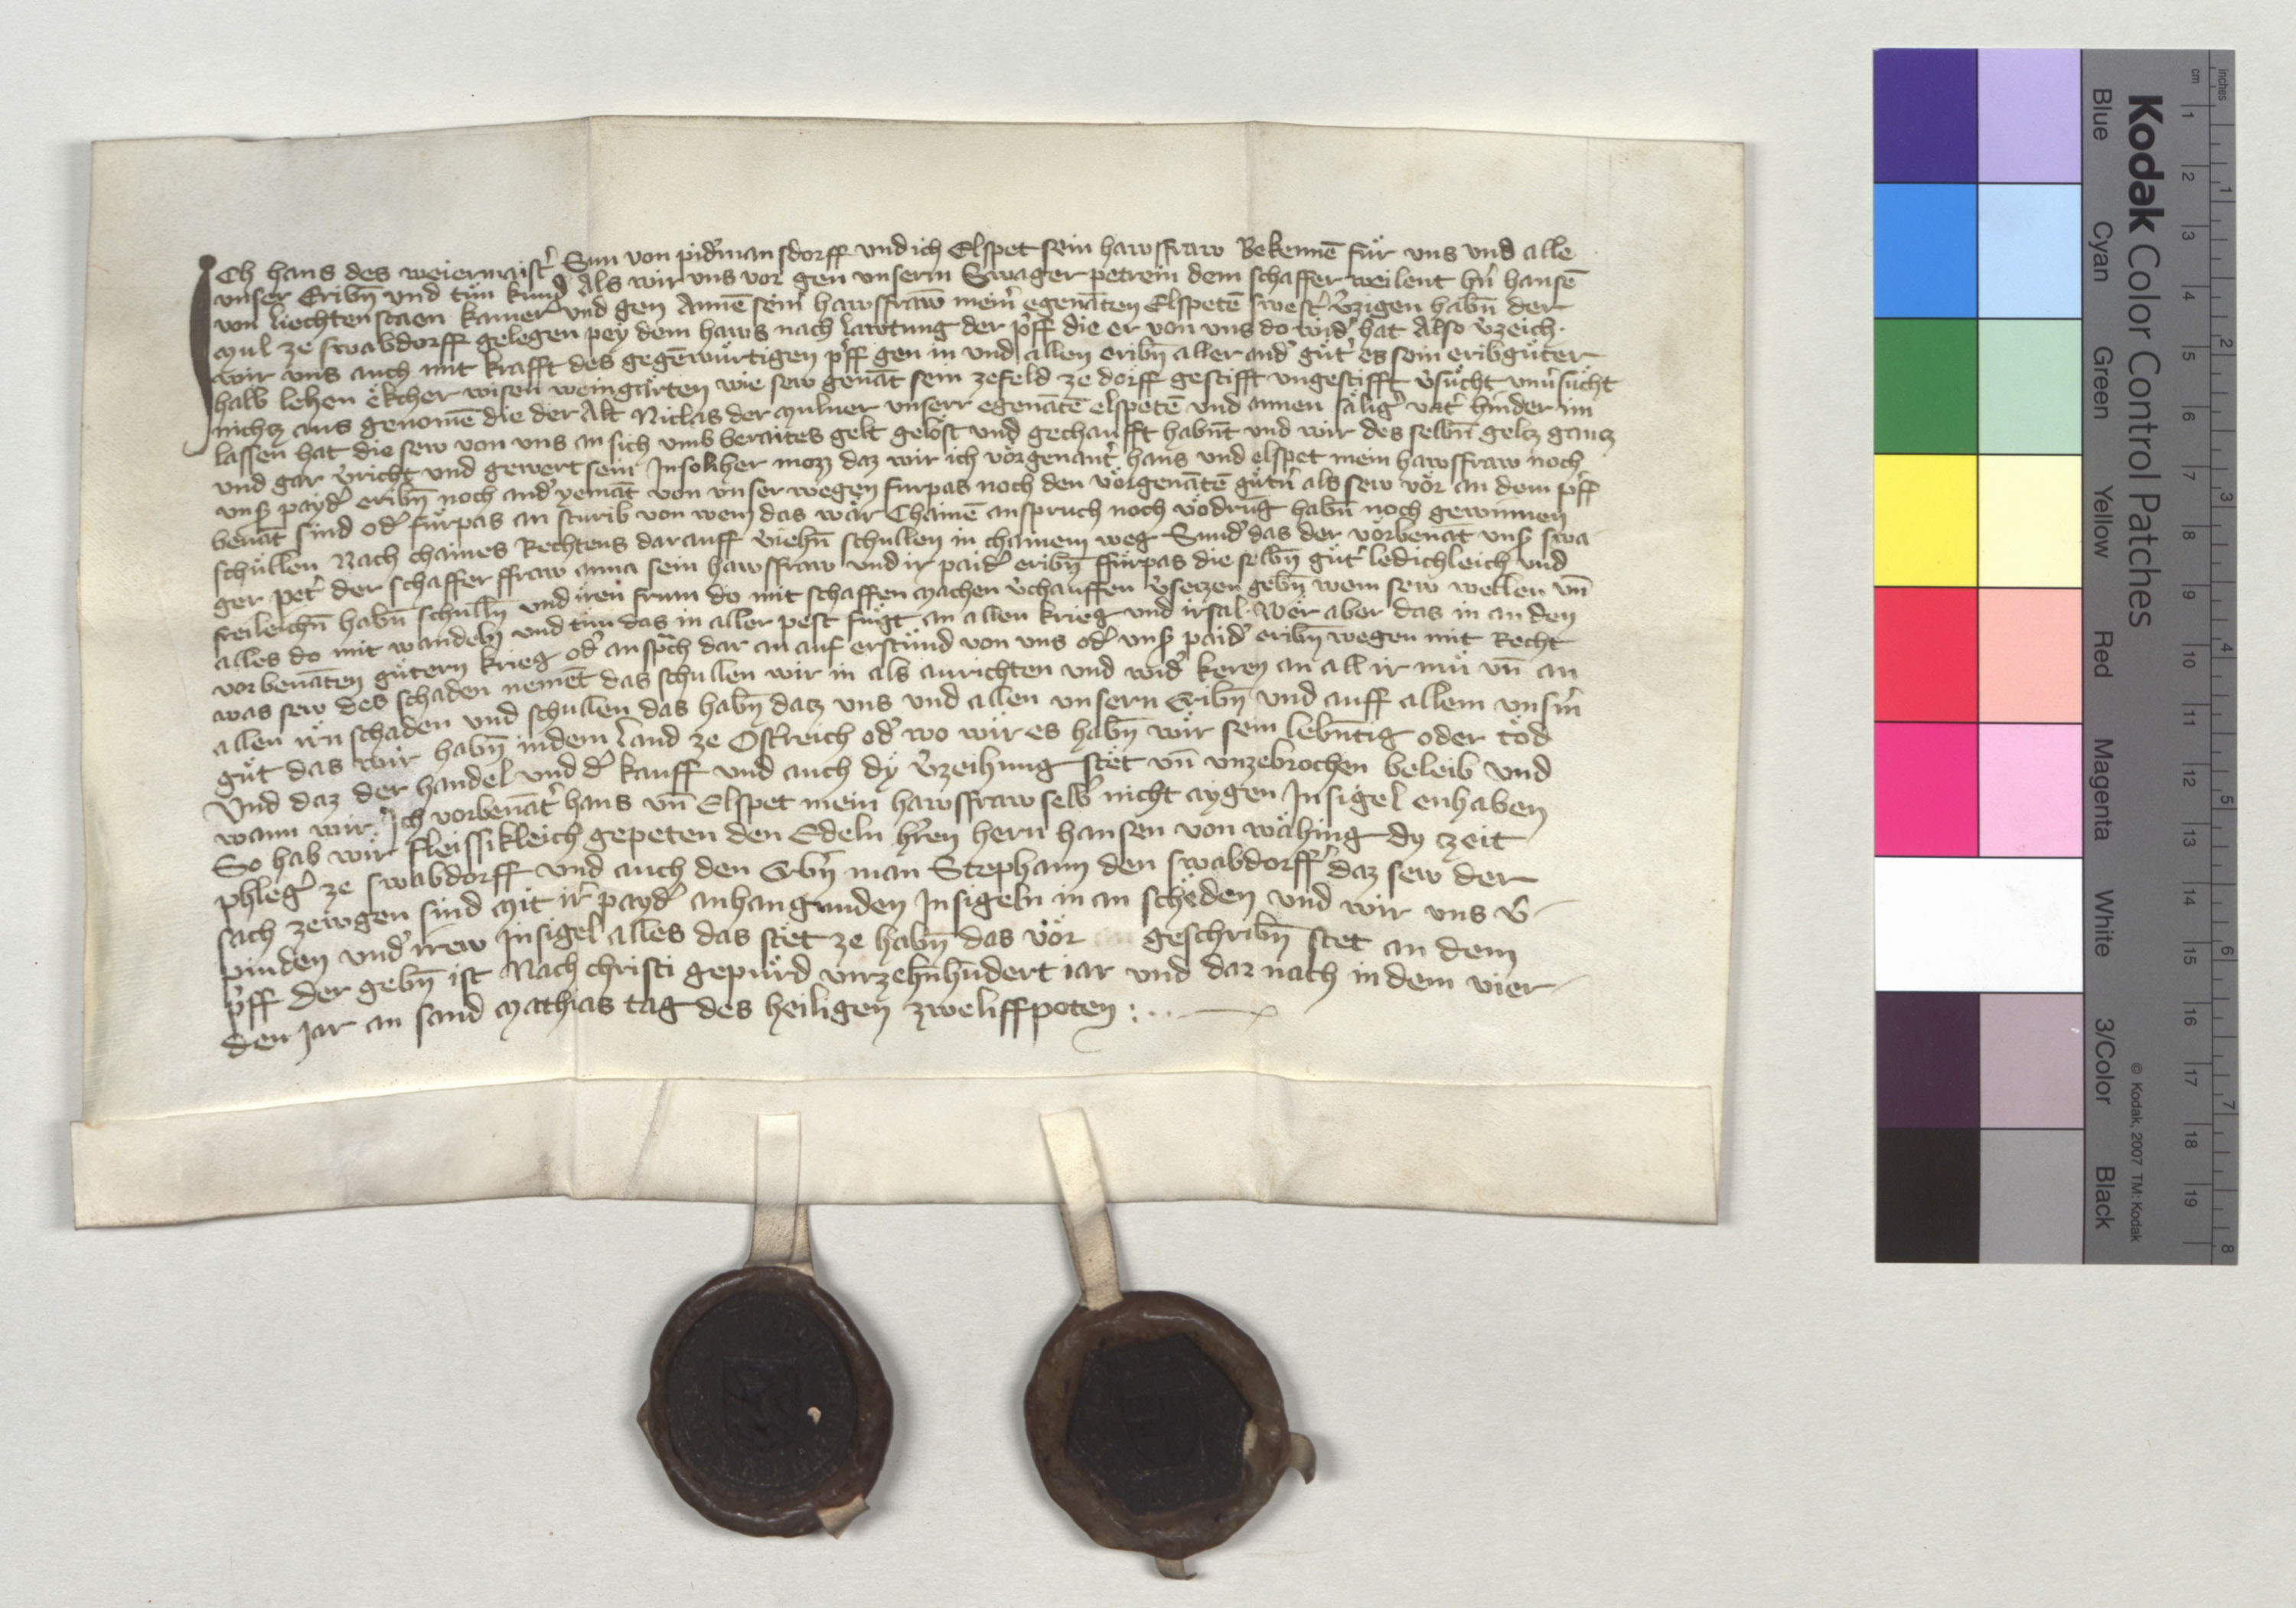 Ich hans des weiermaist᷑ Sun von pid᷑mansdorff und ich Elspet sein hawsfraw Bekennē fuͤr uns und alle
unser Eribn̄ und tuͤn kund Als wir uns vor gen unserm Swager petrein dem schaffer weilent hn᷑ hansē
von liechtenstaen kamer᷑ und gen Annē sein᷑ hawsfraw mein᷑ egenāten Elspetē swest᷑ v᷑zigen habn̄ der
mul ze swabdorff gelegen pey dem haws nach lawtung der p᷑ff die er von uns do wid᷑ hat Also v᷑zeich
wir uns auch mit krafft des gegēwuͤrtigen p᷑ff gen in und allen eribn̄ aller and᷑ guͤt᷑ es sein eribguͤter
halb lehen ekcher wisen weingaͤrten wie sew genāt sein zefeld ze dorff gestifft ungestifft v᷑suͤcht unv᷑suͤcht
nichcz aus genomē die der Alt Niclas der mulner unserr egenātē elspetē und annen saͤlig᷑ vat᷑ hinder im
lassen hat die sew von uns an sich umb beraites gelt geloͤst und gechaufft habn̄t und wir des selbn̄ geltz gantz
und gar v᷑richt und gewert sein In solicher mozz daz wir ich vorgenant᷑ hans und elspet mein hawsfraw noch
uns᷑ payd᷑ eribn̄ noch and᷑ yemāt von unser wegen furpas noch den vorgenātē guͤtn᷑ als sew vor an dem p᷑ff
benāt sind od᷑ fuͤrpas an sturib von wem das waͤr Chainē anspruch noch vodrūg habn̄ noch gewinnen
schuͤllen Nach chaines Rechtens darauff v᷑iehn̄ schullen in chainem weg Sund᷑ das der vorbenāt uns᷑ swa
ger pet᷑ der schaffer ffraw anna sein hawsfraw und ir paid᷑ eribn̄ ffuͤrpas die selbn̄ guͤt᷑ ledichleich und
freileichn̄ habn̄ schulln̄ und iren frum do mit schaffen machen v᷑chauffen v᷑seczen gebn̄ wem sew wellen un̄
alles do mit wandeln und tun das in aller pest fuͤgt an allen krieg und irsal Wer aber das in an den
vorbenāten guͤtern krieg od᷑ ansp᷑ch dar an auf erstuͤnd von uns od᷑ uns᷑ paid᷑ eribn̄ wegen mit Recht
was sew des schaden nemēt das schullen wir in als aurichten und wid᷑ keren an all ir muͤ un̄ an
allen irn schaden und schullen das habn̄ datz uns und allen unsern Eribn̄ und auff allem unsm᷑
guͤt das wir habn̄ in dem Land ze Ostreich od᷑ wo wir es habn̄ wir sein lebn̄tig oder toͤd
Und daz der handel und d᷑ kauff und auch dy v᷑zeihung stet un̄ unzebrochen beleib und
wann wir Ich vorbenāt᷑ hans un̄ Elspet mein hawsfraw selb᷑ nicht aygen Insigel enhaben
So hab wir fleissikleich gepeten den Edeln h᷑ren hern hansen von waͤhing dy zeit
phleg᷑ ze swabdorff und auch den Erbn᷑ man Stephann den swabdorff᷑ daz sew der
sach zewgen sind mit ir᷑ payd᷑ anhangunden Insigeln in an scheden und wir uns v᷑
pinden und᷑ irew Insigel alles das stet ze habn̄ das vor geschribn̄ stet an dem
p᷑ff der gebn̄ ist Nach christi gepuͤrd virzehn̄hūdert iar und dar nach in dem vier
den Jar an sand Mathias tag des heiligen zweliffpoten
Kodak Color Control Patches
Blue Cyan Green Yellow Red Magenta White 3/Color Black
© Kodak, 2007 TM: Kodak
cm 1 2 3 4 5 6 7 8 9 10 11 12 13 14 15 16 17 18 19
inches 1 2 3 4 5 6 7 8